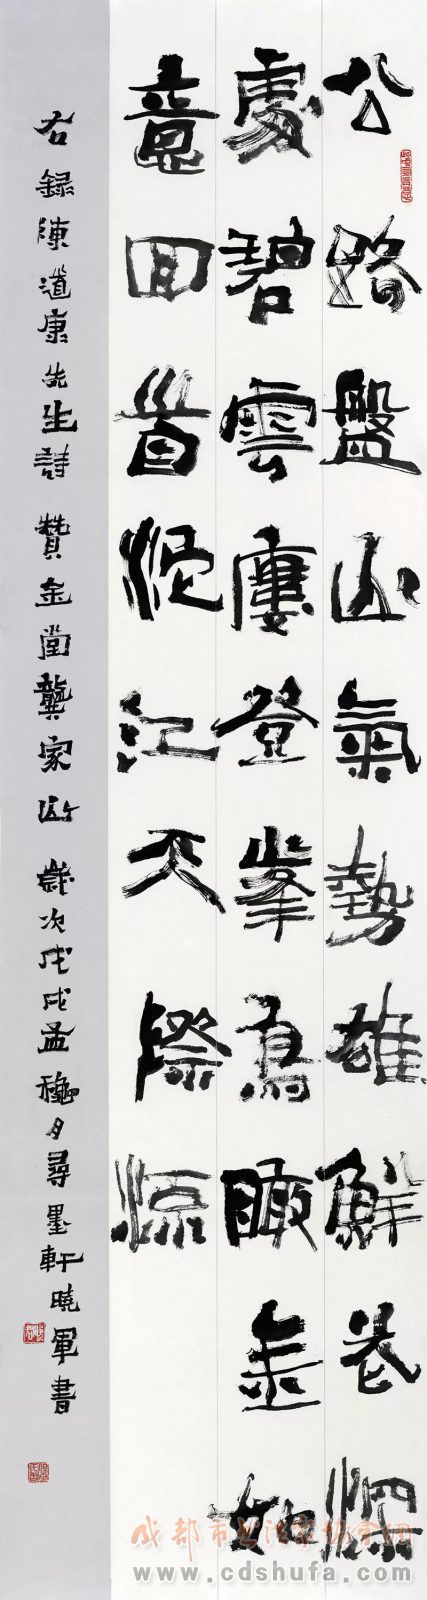 公路盤山氣勢雄鮮花爛
處碧雲廔登峯鳥瞰金如
意回首沱江天際流
右錄陳道康先生詩 贊金堂龔家山 歲次戊戌孟穐月尋墨軒曉軍書
成都市书法家协会网
www.cdshufa.com